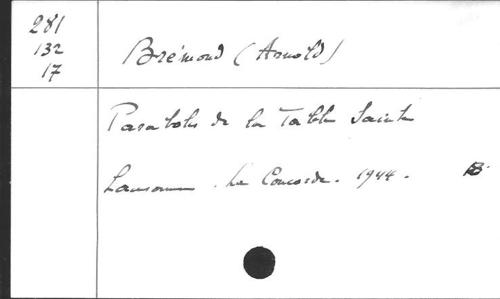 281
132
17
Brémond (Arnold)
Paraboles de la Table Sainte
Lausanne. La Concorde. 1944. B